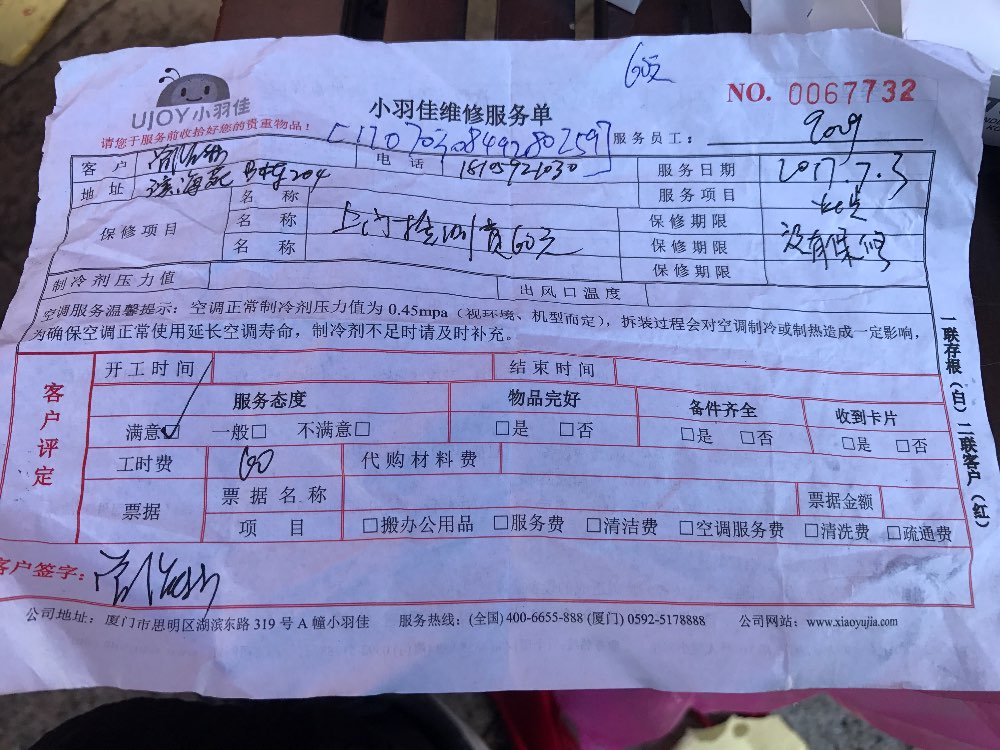 60元
NO. 0067732
UJOY小羽佳
小羽佳维修服务单
请您于服务前收拾好您的贵重物品！
[12070308449280259]
服务员工：
客户 电话 18105921030 服务日期 2017.7.3
地址 滨海 204 名称 服务项目
保修项目 名称 上门检测费60元 保修期限 没有保修
名称 保修期限
保修期限
制冷剂压力值 出风口温度
空调服务温馨提示：空调正常制冷剂压力值为 0.45mpa（视环境、机型而定），拆装过程会对空调制冷或制热造成一定影响，
为确保空调正常使用延长空调寿命，制冷剂不足时请及时补充。
客户评定
开工时间 结束时间
服务态度 物品完好 备件齐全 收到卡片
满意☑ 一般□ 不满意□ □是 □否 □是 □否 □是 □否
工时费 60 代购材料费
票据 票据名称 票据金额
项目 □搬办公用品 □服务费 □清洁费 □空调服务费 □清洗费 □疏通费
一联存根（白）二联客户（红）
客户签字：
公司地址：厦门市思明区湖滨东路 319 号 A 幢小羽佳 服务热线：(全国) 400-6655-888 (厦门) 0592-5178888 公司网站：www.xiaoyujia.com